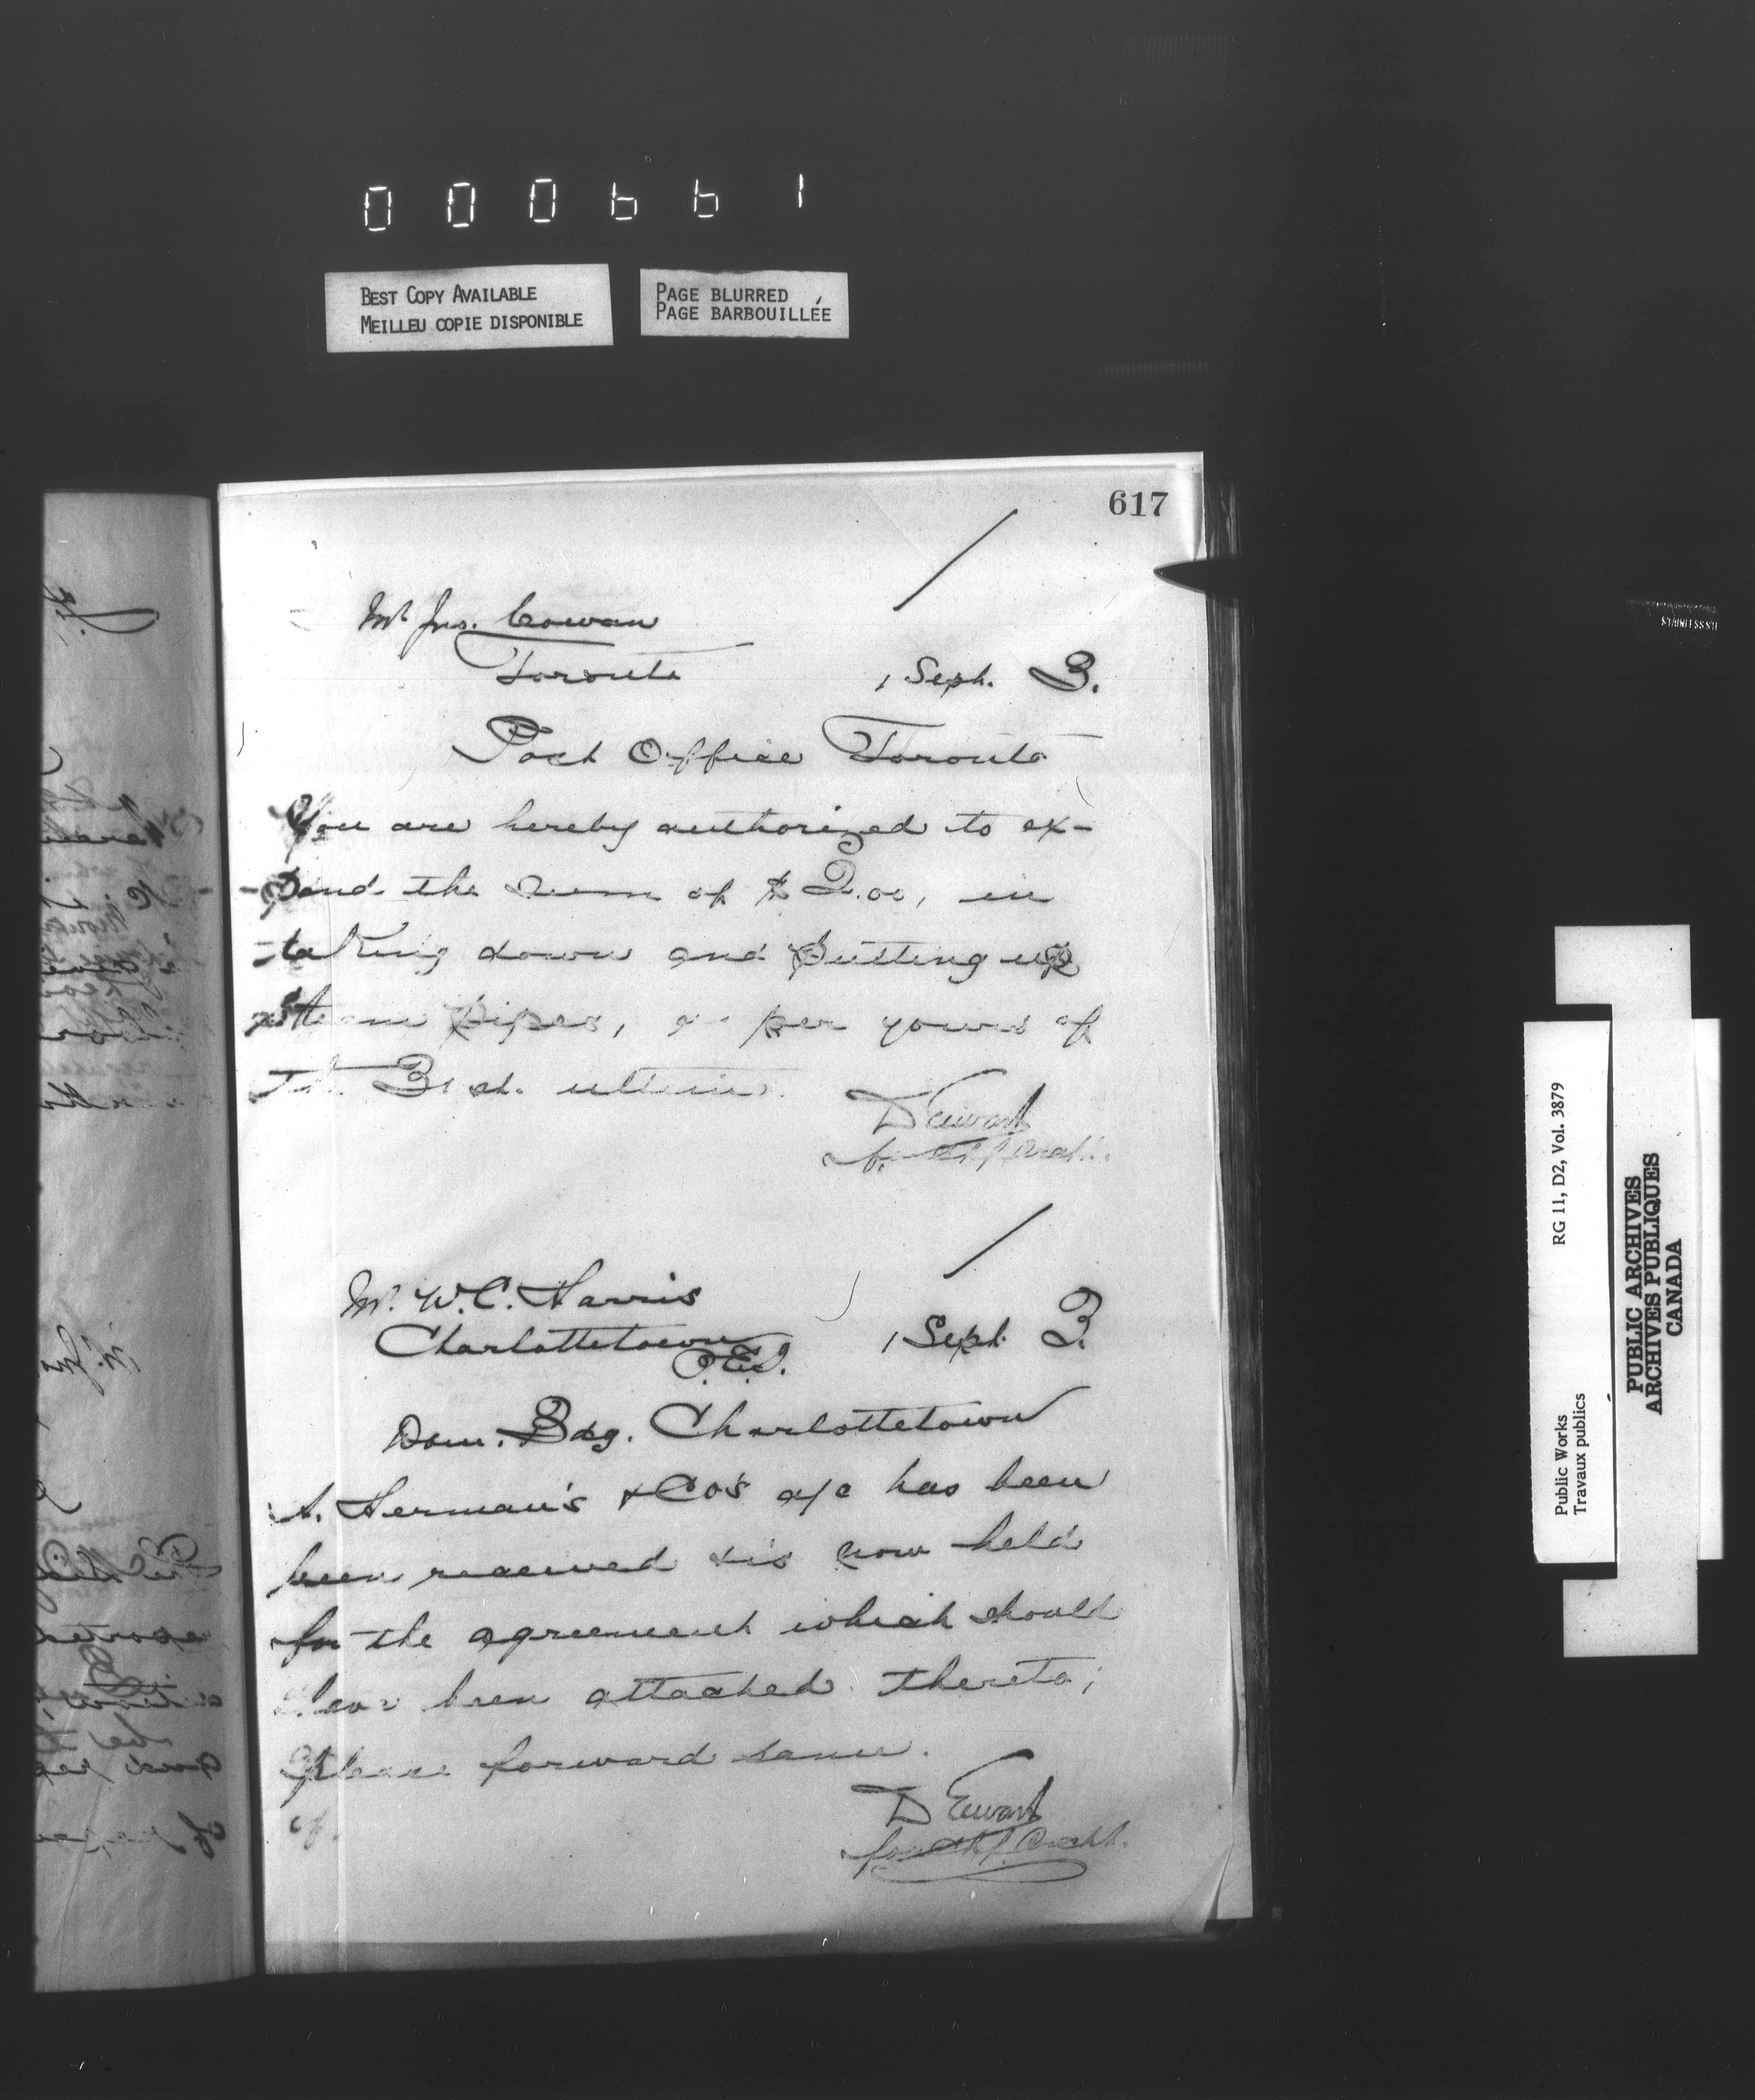 000661
BEST COPY AVAILABLE
MEILLEU COPIE DISPONIBLE
PAGE BLURRED
PAGE BARBOUILLÉE
617
Mr Jno. Cowan
Toronto
1 Sept. 3.
Post Office Toronto
You are hereby authorized to ex-
pend the sum of $2.00, in
taking down and putting up
steam pipes, as per yours of
the 31st. ultimo.
D Ewart
Mr. W. C. Harris
Charlottetown
P.E.I.
1 Sept. 3.
Dom. Bdg. Charlottetown
A. Herman's & Co's a/c has been
been received & is now held
for the agreement which should
have been attached thereto;
Please forward same.
D Ewart
RG 11, D2, Vol. 3879
Public Works
Travaux publics
PUBLIC ARCHIVES
ARCHIVES PUBLIQUES
CANADA